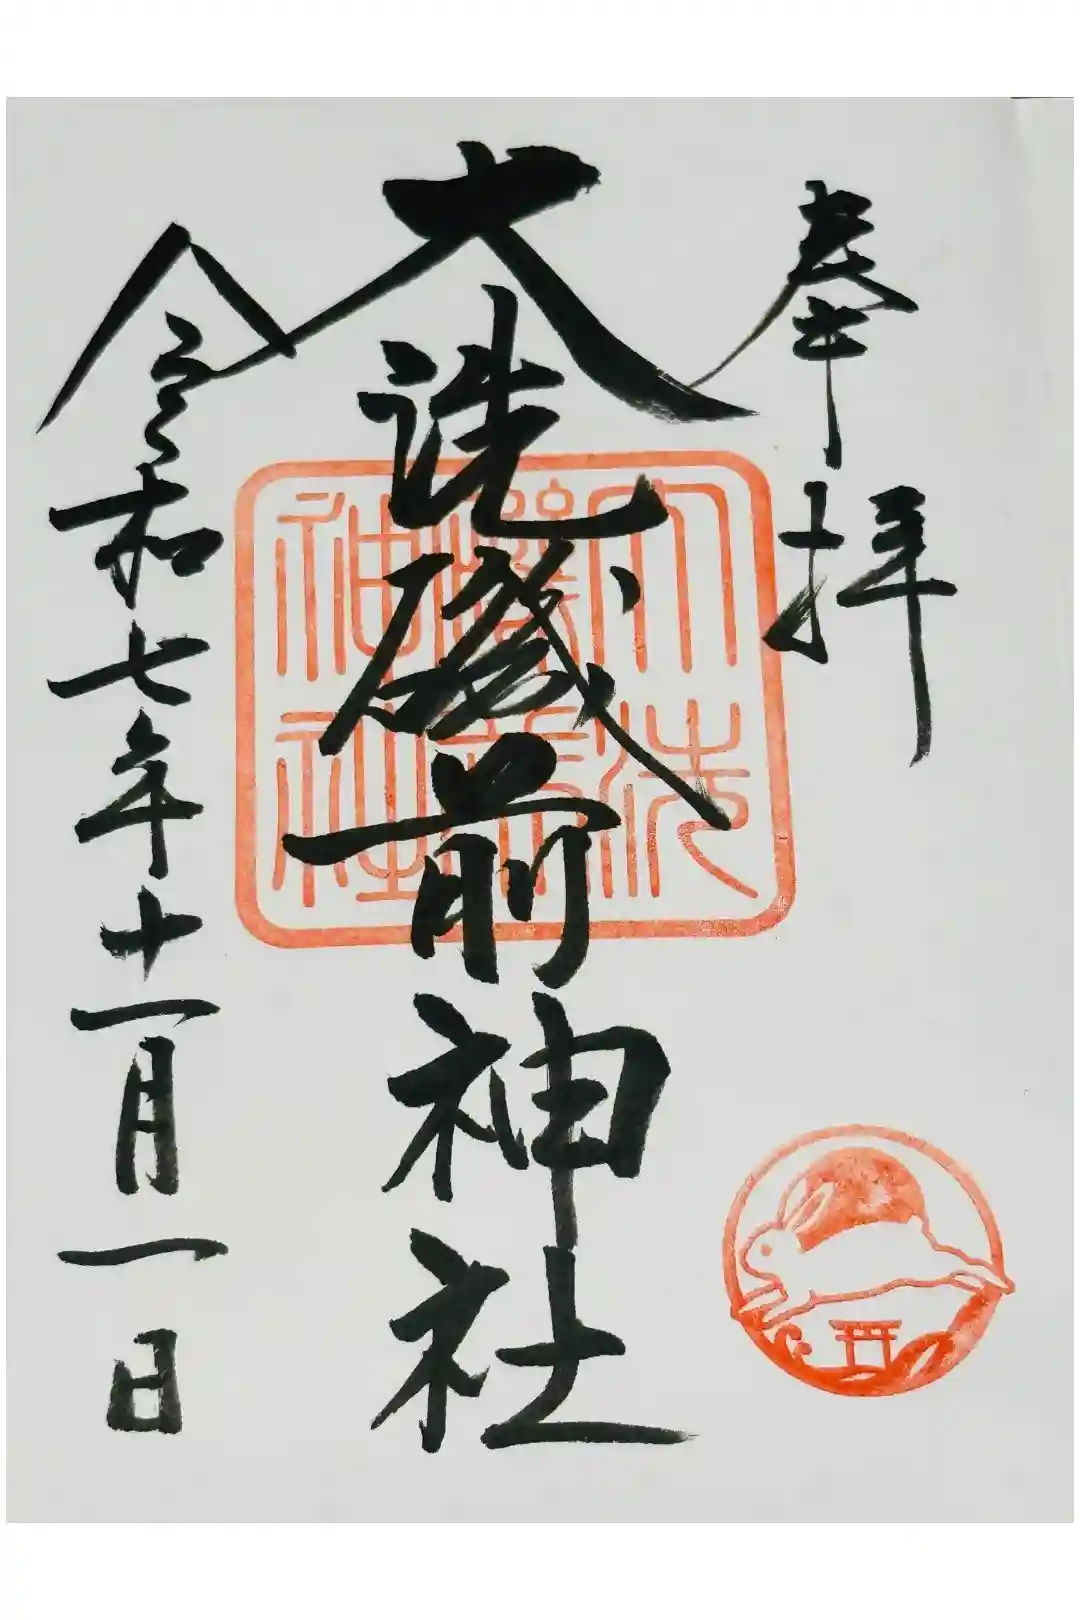 奉拝
大洗磯前神社
大洗
磯前
神社
令和七年十一月一日